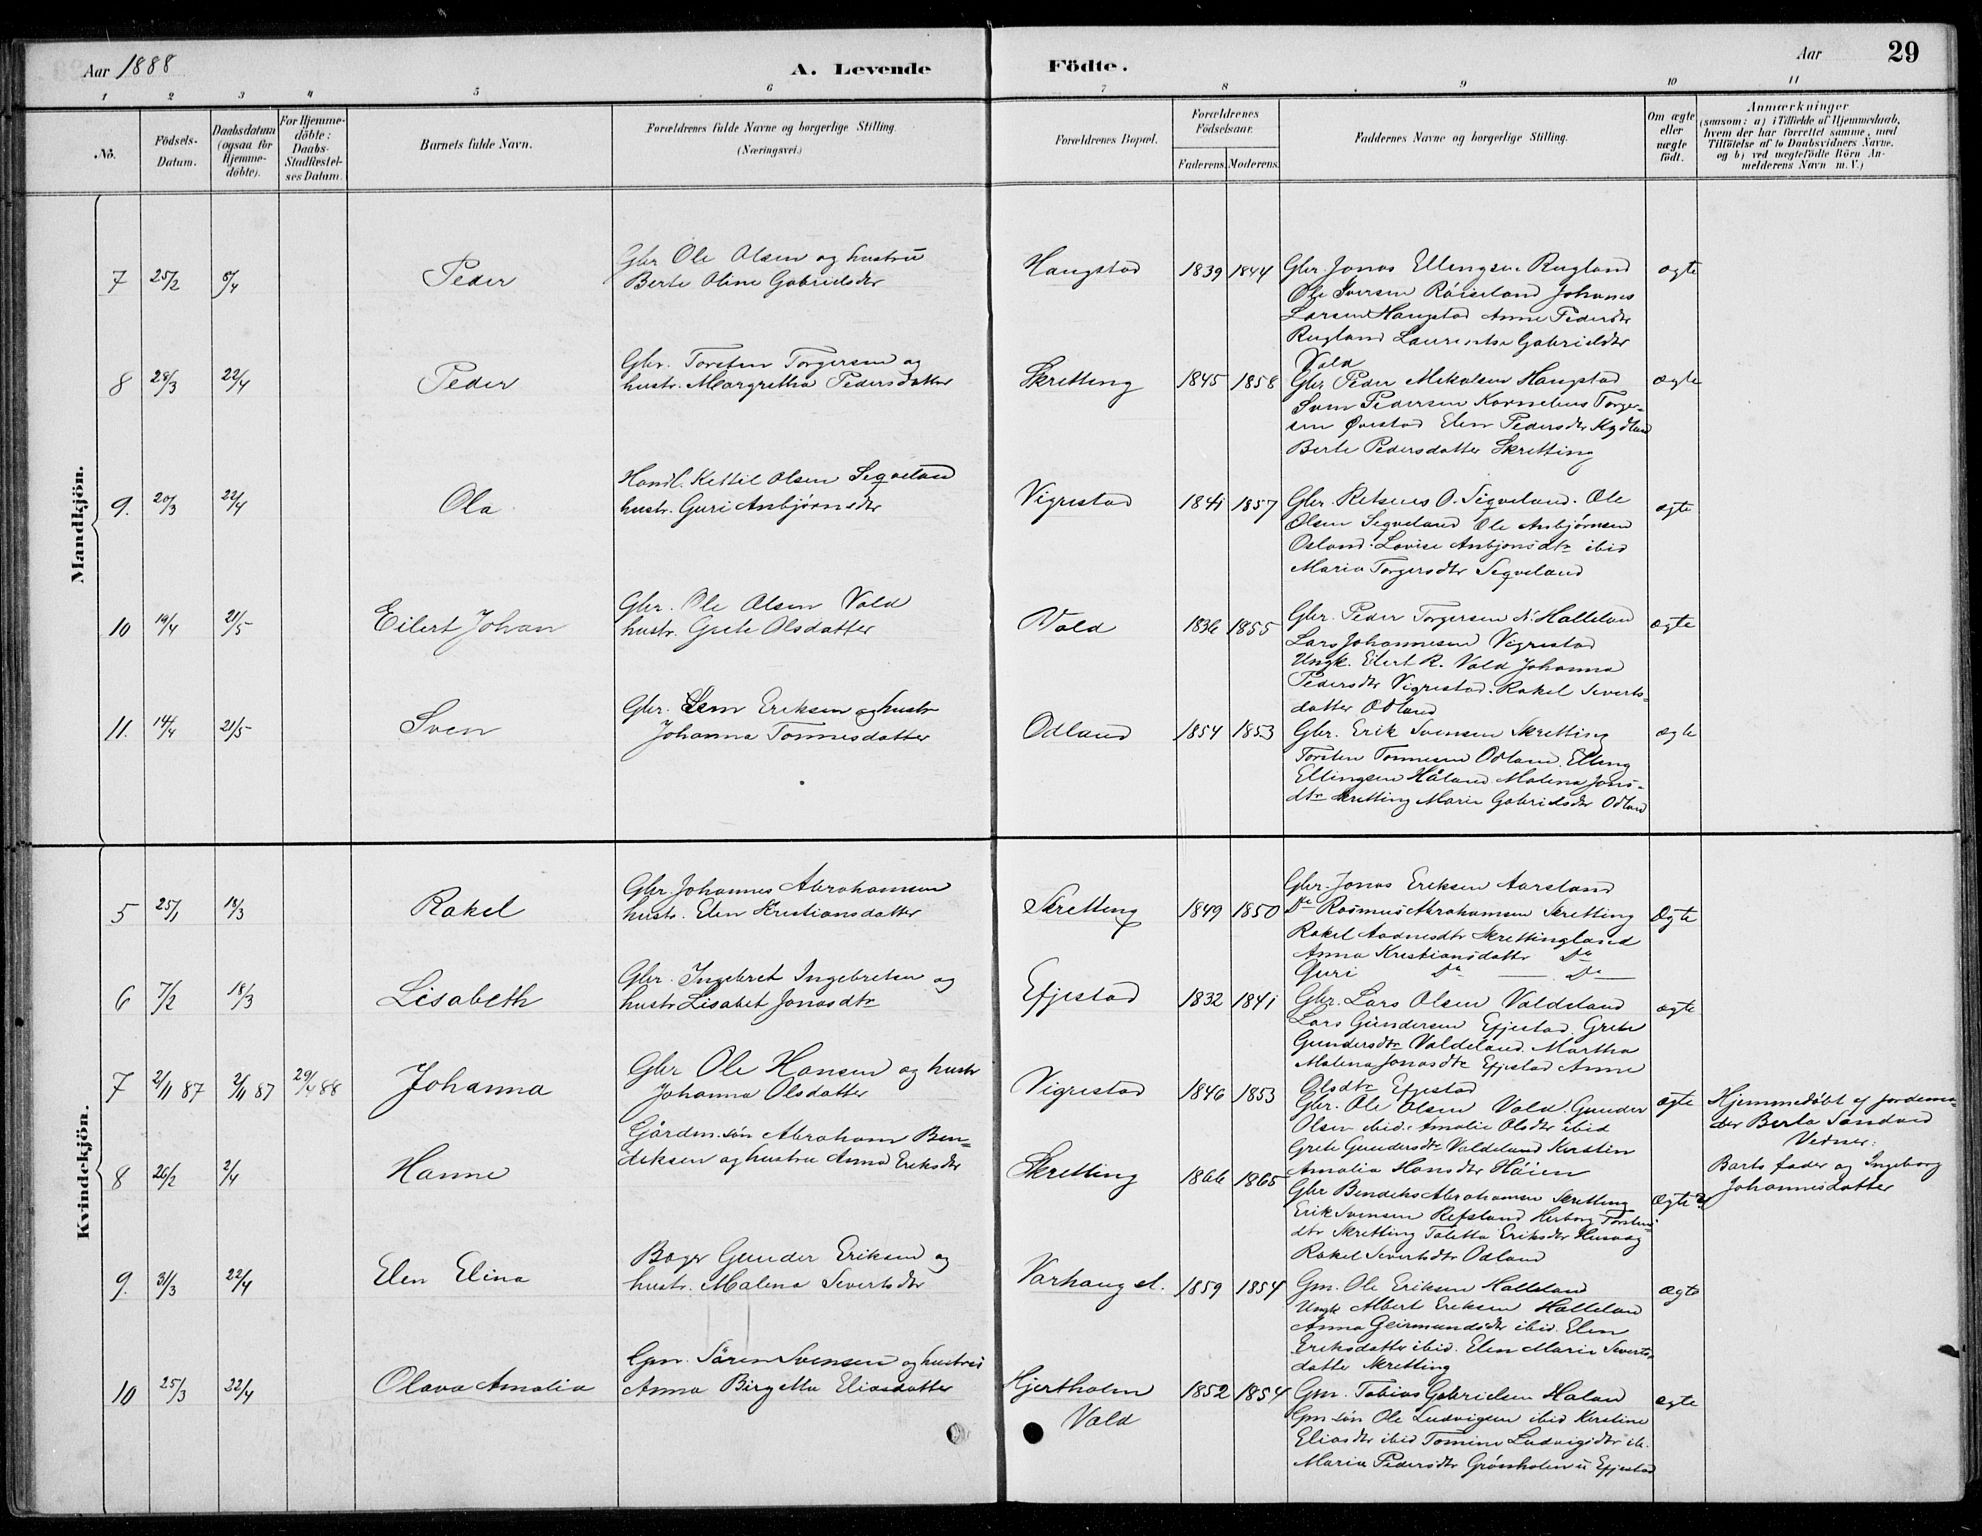 Aar 1888
A. Levende Födte.
Aar
29
1 2 3 4 5 6 7 8 9 10 11
No.
Födsels-Datum.
Daabsdatum (ogsaa for Hjemme-döbte).
For Hjemme-döbte: Daabs-Stadfæstel-ses Datum.
Barnets fulde Navn.
Forældrenes fulde Navne og borgerlige Stilling.
(Næringsvei.)
Forældrenes Bopæl.
Forældrenes Födselsaar.
Faderens. Moderens.
Faddernes Navne og borgerlige Stilling.
Om ægte eller uægte födt.
Anmærkninger
(saasom: a) i Tilfælde af Hjemmedaab,
hvem der har forrettet samme, med
Tilföielse af to Daabsvidners Navne.
og b) ved uægtefödte Börn An-
melderens Navn m. V.)
Mandkjön.
7 25/2 /4 Peder
Gbr Ole Olsen og hustru
Berte Oline Gabrielsdtr
Haugstad 1839 1844
Gbr. Jonas Ellingsen Rugland
Ole Iversen Röiseland Johanes
Larsen Haugstad Anne Pedersdtr
Rugland Laurentse Gabrielsdtr
Vold
ægte
8 28/3 22/4 Peder
Gbr. Torsten Torgersen og
hustr. Margretha Pedersdatter
Skretting 1845 1858
Gbr. Peder Mikalsen Haugstad
Sven Pedersen Kornelius Torger-
sen Øvestad Elen Pedersdtr Kydland
Berte Pedersdatter Skretting
ægte
9. 20/3 22/4 Ola
Handl. Kettil Olsen Seqveland
hustr. Guri Asbjörnsdtr
Vigrestad 1841 1857
Gbr. Retsenes O. Siqveland. Ole
Olsen Seqveland Ole Asbjørnsen
Osland. Lovise Asbjonsdtr ibid
Maria Torgersdtr Seqveland
ægte
10 19/4 21/5 Eilert Johan
Gbr. Ole Olsen Vold
hustr. Grete Olsdatter
Vold 1836 1855
Gbr. Peder Torgersen N. Halleland
Lars Johannesen Vigrestad
Ungk. Eilert R. Vold Johanna
Pedersdtr Vigrestad. Rakel Severts-
datter Odland
ægte
11. 14/4 21/5 Sven
Gbr. Sven Eriksen og hustr
Johanna Tonnesdatter
Odland 1854 1853
Gbr. Erik Svensen Skretting
Torsten Tonnesen Odland. Elling
Ellingsen Håland Malena Jons-
dtr Skretting Marie Gabrielsdtr Odland
ægte
Kvindekjön.
5 25/1 18/3 Rakel
Gbr. Johannes Abrahamsen
hustr. Elen Kristiansdatter
Skretting 1849 1850
Gbr. Jonas Eriksen Aarsland
Do Rasmus Abrahamsen Skretting
Rakel Aadnesdtr Skrettingland
Anna Kristiansdatter Do
Guri Do — Do —
Ægte
6 7/2 18/3 Lisabeth
Gbr. Ingebret Ingebretsen og
hustr Lisabet Jonasdtr
Efjestad 1832 1841
Gbr. Lars Olsen Valdeland
Lars Gundersen Efjestad. Grete
Gundersdtr Valdeland. Martha
Malena Jonasdtr Efjestad Anne
Olsdtr Efjestad
ægte
7 2/11 87 2/11 87 29/4 88 Johanna
Gbr Ole Hansen og hustr
Johanna Olsdatter
Vigrestad 1846 1853
Gbr. Ole Olsen Vold. Gunder
Olsen ibid. Amalie Olsdtr ibid
Grete Gundersdtr Valdeland Kirstin
Amalia Hansdtr Höien
ægte
Hjemmedøbt af Jordemo-
der Berta Sandved
Vidner:
Barts fader og Ingeborg
Johannesdatter
8 26/2 2/4 Hanne
Gården. søn Abraham Ben-
diksen og hustru Anna Eriksdtr
Skretting 1866 1865
Gbr Bendiks Abrahamsen Skretting
Erik Svensen Refsland Herborg Torstens-
dtr Skretting Taletta Eriksdtr Husvåg
Rakel Severtsdtr Odland
Ægte
9. 31/3 22/4 Elen Elina
Bager Gunder Eriksen og
hustr. Malena Severtsdtr
Varhaug st. 1859 1854
Gm. Ole Eriksen Halleland
Ungk Albert Eriksen Halleland
Anna Geirmundsdtr ibid. Elen
Eriksdatter ibid. Elen Marie Severts-
datter Skretting
ægte
10 25/3 22/4 Olava Amalia
Gm. Sören Svensen og hustru
Anna Birgitta Eliasdatter
Hjertholm
Vold
1852 1854
Gm. Tobias Gabrielsen Håland
Gm søn Ole Ludvigsen ibid Kerstine
Eliasdtr ibid Tomine Ludvigsdtr ib.
Maria Pedersdtr Grönholen u Efjestad
ægte